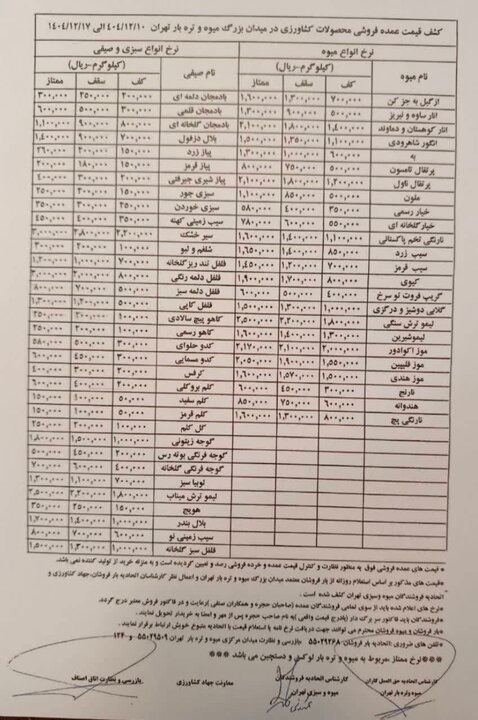 کشف قیمت عمده فروشی محصولات کشاورزی در میدان بزرگ میوه و تره بار تهران ۱۴۰۴/۱۲/۱۰ الی ۱۴۰۴/۱۲/۱۷
نرخ انواع میوه نرخ انواع سبزی و صیفی
نام میوه (کیلوگرم-ریال) نام صیفی (کیلوگرم-ریال)
کف سقف ممتاز کف سقف ممتاز
ازگیل به جز کن ۷۰۰,۰۰۰ ۱,۳۰۰,۰۰۰ ۱,۶۰۰,۰۰۰ بادمجان دلمه ای ۲۰۰,۰۰۰ ۲۵۰,۰۰۰ ۳۰۰,۰۰۰
انار ساوه و نیریز ۵۰۰,۰۰۰ ۹۰۰,۰۰۰ ۱,۳۰۰,۰۰۰ بادمجان قلمی ۳۰۰,۰۰۰ ۵۰۰,۰۰۰ ۶۰۰,۰۰۰
انار کوهستان و دماوند ۱,۴۰۰,۰۰۰ ۱,۸۰۰,۰۰۰ ۲,۱۰۰,۰۰۰ بادمجان گلخانه ای ۸۰۰,۰۰۰ ۹۰۰,۰۰۰ ۱,۱۰۰,۰۰۰
انگور شاهرودی ۱,۱۰۰,۰۰۰ ۱,۳۵۰,۰۰۰ ۱,۵۰۰,۰۰۰ بلال دزفول ۷۰۰,۰۰۰ ۹۰۰,۰۰۰ ۱,۴۰۰,۰۰۰
به ۶۰۰,۰۰۰ ۱,۰۰۰,۰۰۰ ۱,۳۰۰,۰۰۰ پیاز زرد ۱۵۰,۰۰۰ ۲۰۰,۰۰۰ ۲۶۰,۰۰۰
پرتقال تامسون ۵۰۰,۰۰۰ ۷۵۰,۰۰۰ ۸۰۰,۰۰۰ پیاز قرمز ۱۵۰,۰۰۰ ۱۸۰,۰۰۰ ۲۰۰,۰۰۰
پرتقال ناول ۱,۲۰۰,۰۰۰ ۱,۸۰۰,۰۰۰ ۲,۱۰۰,۰۰۰ پیاز شیری جیرفتی ۲۰۰,۰۰۰ ۳۰۰,۰۰۰ ۴۰۰,۰۰۰
ملون ۵۰۰,۰۰۰ ۸۵۰,۰۰۰ ۱,۱۰۰,۰۰۰ سبزی جور ۱۵۰,۰۰۰ ۲۵۰,۰۰۰ ۳۰۰,۰۰۰
خیار رسمی ۳۵۰,۰۰۰ ۴۰۰,۰۰۰ ۵۸۰,۰۰۰ سبزی خوردن ۲۵۰,۰۰۰ ۳۵۰,۰۰۰
خیار گلخانه ای ۵۵۰,۰۰۰ ۶۰۰,۰۰۰ ۷۸۰,۰۰۰ سیب زمینی کهنه ۳۵۰,۰۰۰ ۴۰۰,۰۰۰ ۴۵۰,۰۰۰
نارنگی تخم پاکستانی ۱,۱۰۰,۰۰۰ ۱,۴۰۰,۰۰۰ ۱,۶۰۰,۰۰۰ سیر خشک ۲,۲۰۰,۰۰۰ ۲,۸۰۰,۰۰۰
سیب زرد ۸۵۰,۰۰۰ ۱,۴۰۰,۰۰۰ ۱,۶۵۰,۰۰۰ شلغم و لبو ۱۰۰,۰۰۰ ۲۰۰,۰۰۰ ۳۰۰,۰۰۰
سیب قرمز ۷۰۰,۰۰۰ ۱,۲۰۰,۰۰۰ ۱,۴۵۰,۰۰۰ فلفل تند ریز گلخانه ۷۰۰,۰۰۰ ۱,۰۰۰,۰۰۰ ۱,۲۰۰,۰۰۰
کیوی ۸۰۰,۰۰۰ ۱,۷۰۰,۰۰۰ ۱,۹۰۰,۰۰۰ فلفل دلمه رنگی ۸۰۰,۰۰۰ ۲,۰۰۰,۰۰۰
گریپ فروت تو سرخ ۴۰۰,۰۰۰ ۵۰۰,۰۰۰ ۶۰۰,۰۰۰ فلفل دلمه سبز ۵۰۰,۰۰۰ ۷۰۰,۰۰۰ ۸۰۰,۰۰۰
گلابی دوشیز و درگزی ۱,۰۰۰,۰۰۰ ۱,۳۰۰,۰۰۰ ۱,۵۰۰,۰۰۰ فلفل کاپی ۵۰۰,۰۰۰ ۱,۲۰۰,۰۰۰ ۱,۳۰۰,۰۰۰
لیمو ترش سنگی ۱,۸۰۰,۰۰۰ ۲,۲۰۰,۰۰۰ ۲,۵۰۰,۰۰۰ کاهو پیچ سالادی ۱۰۰,۰۰۰ ۲۰۰,۰۰۰
لیموشیرین ۱,۳۰۰,۰۰۰ ۱,۴۰۰,۰۰۰ ۱,۶۰۰,۰۰۰ کاهو رسمی ۱۰۰,۰۰۰ ۲۰۰,۰۰۰ ۲۵۰,۰۰۰
موز اکوادور ۲,۰۰۰,۰۰۰ ۲,۱۰۰,۰۰۰ ۲,۱۷۰,۰۰۰ کدو حلوای ۳۰۰,۰۰۰ ۵۰۰,۰۰۰ ۵۸۰,۰۰۰
موز فلیپین ۱,۵۵۰,۰۰۰ ۱,۹۰۰,۰۰۰ ۲,۰۵۰,۰۰۰ کدو مسمایی ۳۰۰,۰۰۰ ۴۵۰,۰۰۰ ۶۰۰,۰۰۰
موز هندی ۱,۵۰۰,۰۰۰ ۱,۵۷۰,۰۰۰ ۱,۶۰۰,۰۰۰ کرفس ۲۰۰,۰۰۰ ۳۰۰,۰۰۰ ۴۰۰,۰۰۰
نارنج ۳۰۰,۰۰۰ ۴۵۰,۰۰۰ ۶۰۰,۰۰۰ کلم بروکلی ۲۰۰,۰۰۰ ۴۰۰,۰۰۰ ۶۰۰,۰۰۰
هندوانه ۶۰۰,۰۰۰ ۷۵۰,۰۰۰ ۸۵۰,۰۰۰ کلم سفید ۵۰,۰۰۰ ۱۰۰,۰۰۰ ۱۵۰,۰۰۰
نارنگی پیج ۸۰۰,۰۰۰ ۱,۳۰۰,۰۰۰ ۱,۶۰۰,۰۰۰ کلم قرمز ۵۰,۰۰۰ ۱۰۰,۰۰۰ ۱۵۰,۰۰۰
گل کلم ۱۰۰,۰۰۰ ۲۰۰,۰۰۰ ۲۵۰,۰۰۰
گوجه زیتونی ۱,۰۰۰,۰۰۰ ۱,۵۰۰,۰۰۰ ۱,۸۰۰,۰۰۰
گوجه فرنگی بوته رس ۲۰۰,۰۰۰ ۴۵۰,۰۰۰ ۵۰۰,۰۰۰
گوجه فرنگی گلخانه ۴۰۰,۰۰۰ ۶۰۰,۰۰۰ ۷۰۰,۰۰۰
لوبیا سبز ۷۰۰,۰۰۰ ۱,۱۰۰,۰۰۰ ۱,۳۰۰,۰۰۰
لیمو ترش میناب ۱,۸۰۰,۰۰۰ ۲,۲۰۰,۰۰۰ ۲,۵۰۰,۰۰۰
هویج ۱۵۰,۰۰۰ ۲۵۰,۰۰۰ ۳۵۰,۰۰۰
بلال بندر ۱,۰۰۰,۰۰۰ ۱,۴۰۰,۰۰۰ ۱,۷۰۰,۰۰۰
سیب زمینی نو ۶۰۰,۰۰۰ ۷۰۰,۰۰۰ ۸۰۰,۰۰۰
فلفل سبز گلخانه ۱,۰۰۰,۰۰۰ ۱,۳۰۰,۰۰۰ ۱,۵۰۰,۰۰۰
* قیمت های عمده فروشی فوق به منظور نظارت و کنترل قیمت عمده و خرده فروشی رصد و تعیین گردیده است و به منزله خرید از تولید کننده نمی باشد.
*قیمت های مذکور بر اساس استعلام روزانه از بار فروشان معتمد میدان بزرگ میوه و تره بار تهران و اعمال نظر کارشناسان اتحادیه بار فروشان، جهاد کشاورزی و
اتحادیه فروشندگان میوه وسبزی تهران کشف شده است .
*نرخ های اعلام شده باید از سوی تمامی فروشندگان عمده (صاحبان حجره و همکاران صنفی )رعایت و در فاکتور فروش معتبر درج گردد.
*فروشندگان باید فاکتور سر برگ دار (با درج قیمت واقعی )به نام صاحب حجره پس از مهر و امضا به خریدار تحویل نمایند .
*بار فروشان و میوه فروشان محترم می توانند جهت دریافت نرخ نامه یا استعلام قیمت با اتحادیه متبوع خویش ارتباط برقرار نمایند .
*تلفن های ضروری :اتحادیه بار فروشان ۵۵۰۲۹۲۶۸- بازرسی و نظارت میدان مرکزی میوه و تره بار تهران ۵۵۰۲۹۵۰۹ و ۱۲۴
***نرخ ممتاز ،مربوط به میوه و تره بار لوکس و دستچین می باشد ***
کارشناس اتحادیه حق العمل کاران کارشناس اتحادیه فروشندگان معاونت جهاد کشاورزی بازرسی و نظارت اتاق اصناف
میوه وتره بار تهران میوه و سبزی تهران